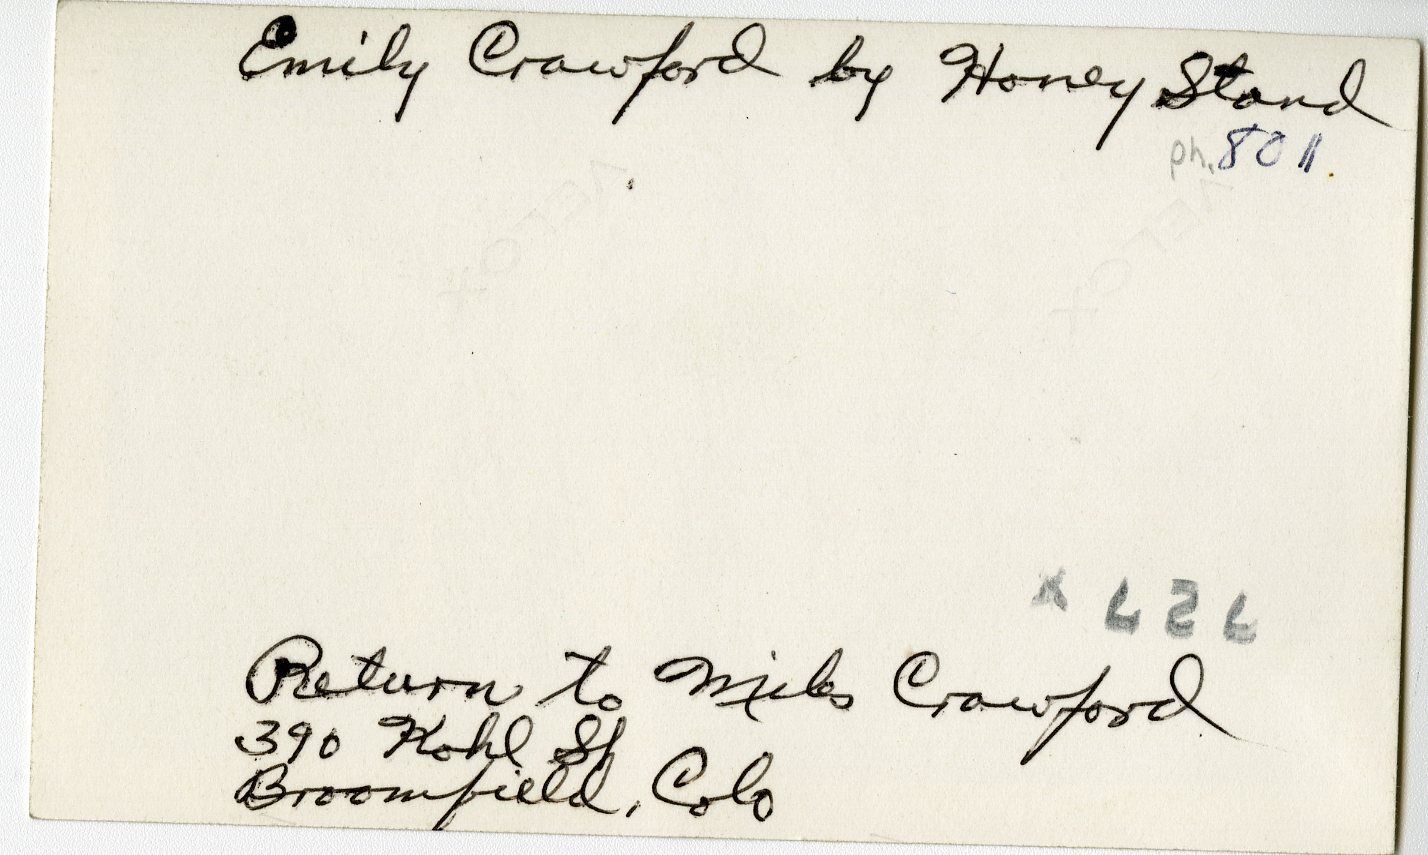 Emily Crawford by Honey Stand
ph. 801
Return to Miles Crawford
390 Kohl St
Broomfield, Colo